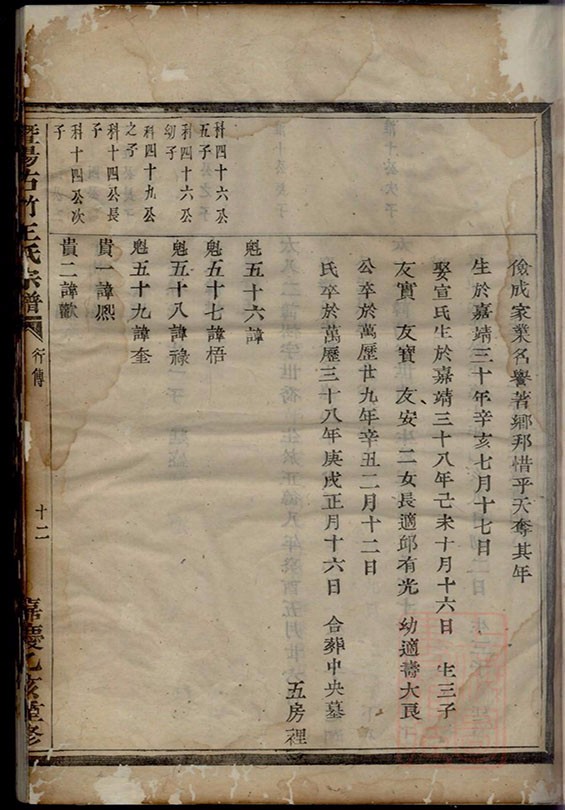 儉成家業名譽著鄉邦惜乎天奪其年
生於嘉靖三十年辛亥七月十七日
娶宣氏生於嘉靖三十八年己未十月十六日 生三子
友實 友寶 友安二女長適邱有光 幼適壽大良
公卒於萬歷廿九年辛丑二月十二日
氏卒於萬歷三十八年庚戌正月十六日 合葬中央墓
五房裡
科四十六公
五子
魁五十六諱
魁五十七諱梧
科四十六公
幼子
魁五十八諱祿
科四十九公
之子
魁五十九諱奎
科十四公長
子
貴一諱熈
科十四公次
子
貴二諱歡
暨陽古竹王氏宗譜
行傳
十二
嘉慶乙亥重修